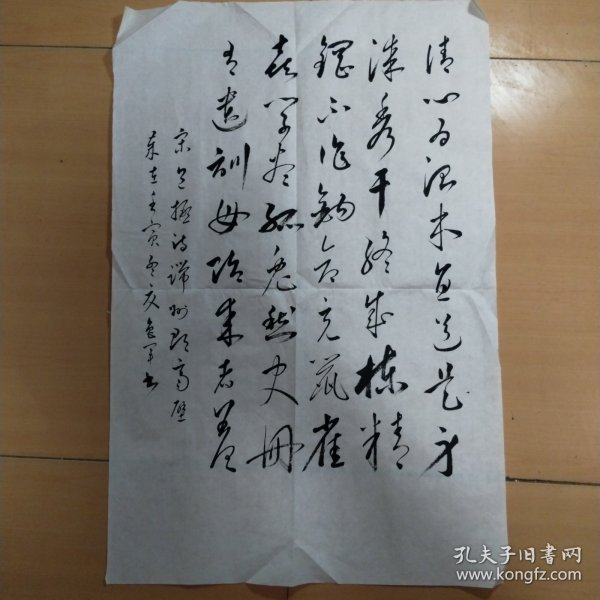 清心为治本直道是身
谋秀干终成栋精
钢不作钩仓充鼠雀
喜草尽狐兔愁史册
有遗训毋贻来者羞
宋包拯诗端州郡斋壁
岁在壬寅冬 军书
孔夫子旧书网
www.kongfz.com